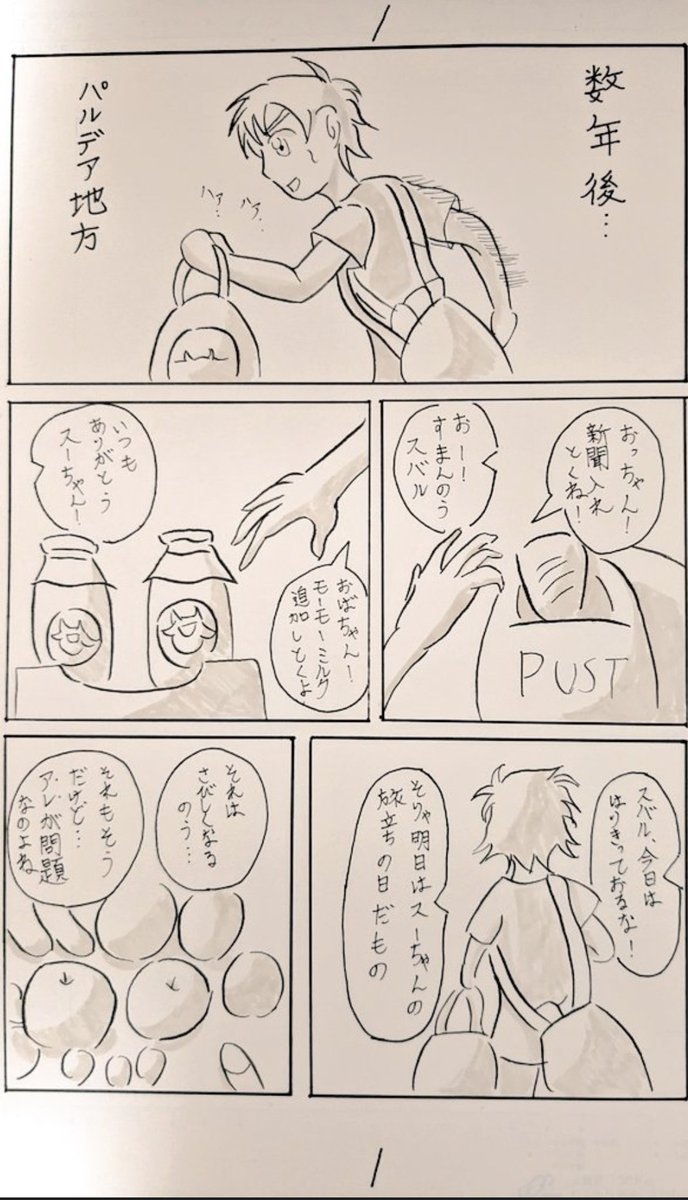 数年後…
パルデア地方
ハァ…
ハァ…
おっちゃん!
新聞入れ
とくね!
おー!
すまんのう
スバル
PUST
おばちゃん!
モーモーミルク
追加しとくよ
いつも
ありがとう
スーちゃん!
スバル、今日は
はりきっておるな!
そりゃ明日はスーちゃんの
旅立ちの日だもの
それは
さびしくなる
のう…
それもそう
だけど…
アレが問題
なのよね